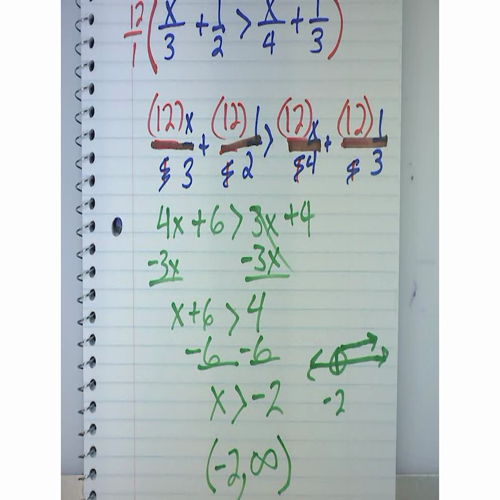 12/1 (x/3 + 1/2 > x/4 + 1/3)
(12)x/3 + (12)1/2 > (12)x/4 + (12)1/3
4x + 6 > 3x + 4
-3x -3x
x + 6 > 4
-6 -6
x > -2
-2
(-2, ∞)